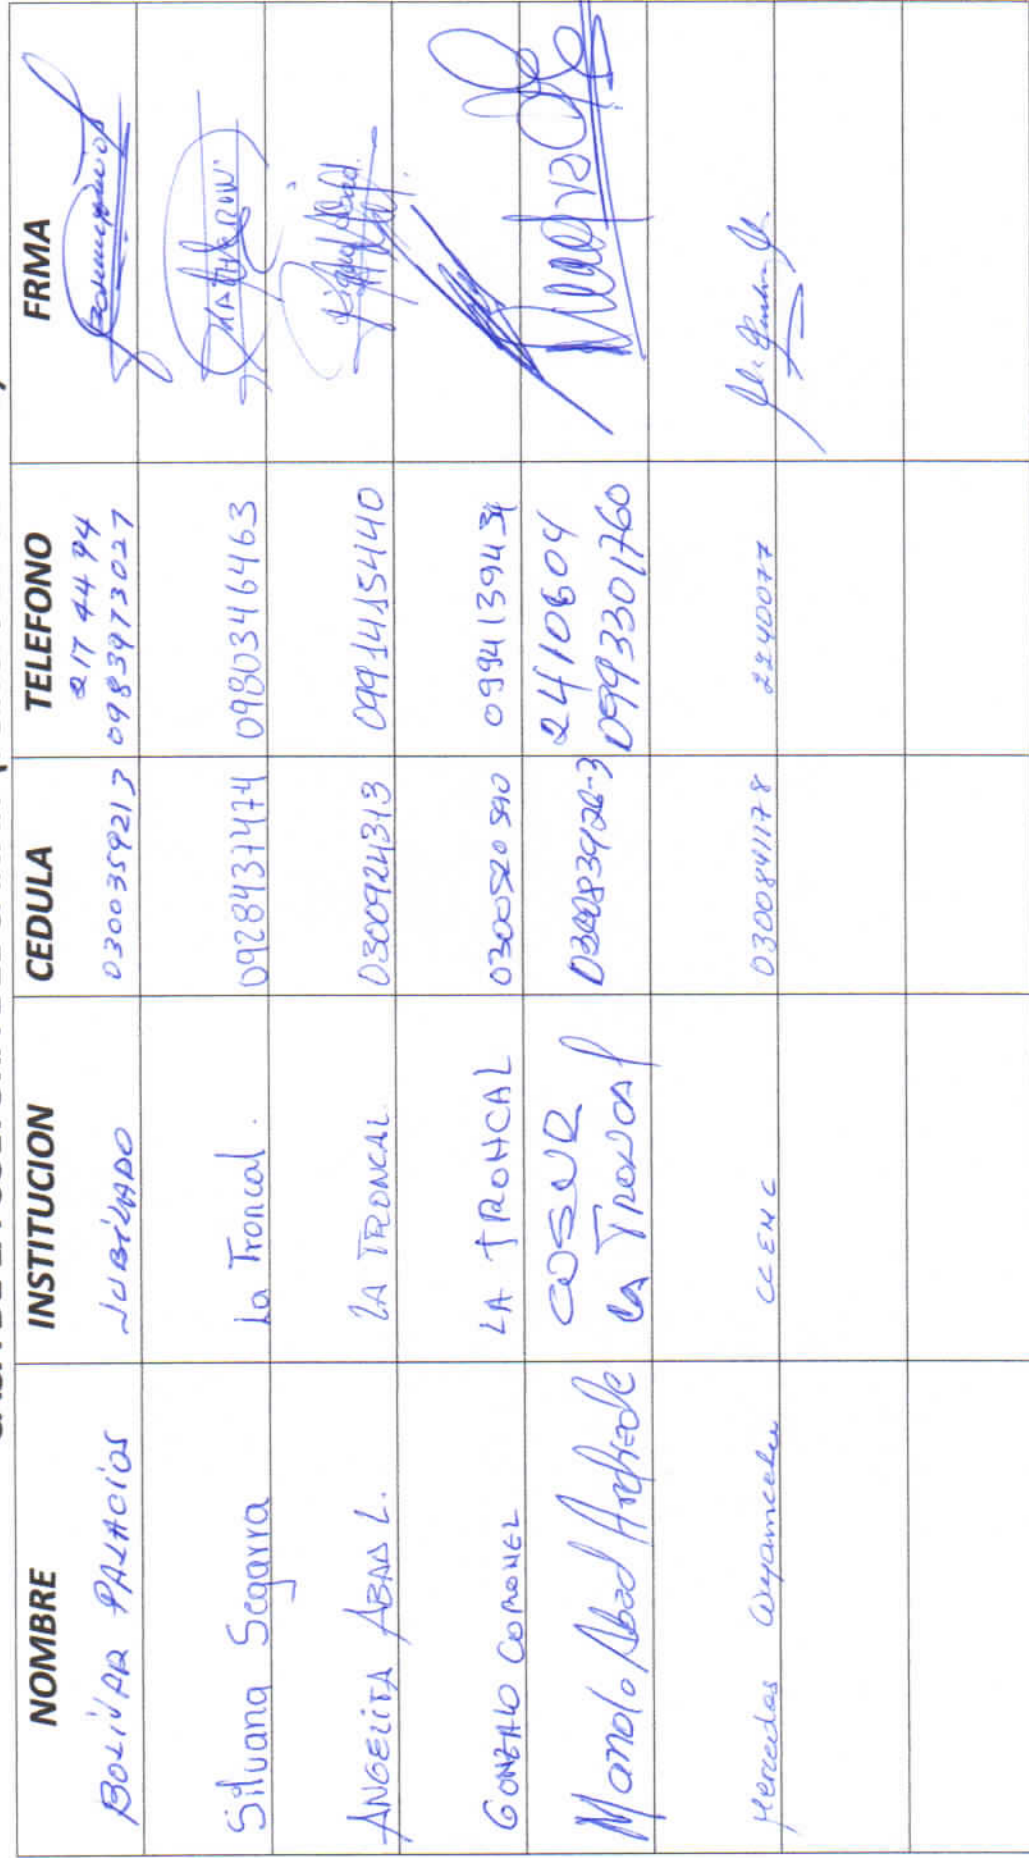 NOMBRE INSTITUCION CEDULA TELEFONO FRMA
BOLÍVAR PALACIOS JUBILADO 0300359213 2174494
0983973027
Silvana Segarra La Troncal. 0928437474 0980346463
ANGELITA ABAD L. LA TRONCAL 0300924313 0991415440
GONZALO CORONEL LA TRONCAL 0300520590 0994139434
Manolo Abad Andrade La Troncal 2410604
0993301760
Mercedes CCENC 0300841178 2240077